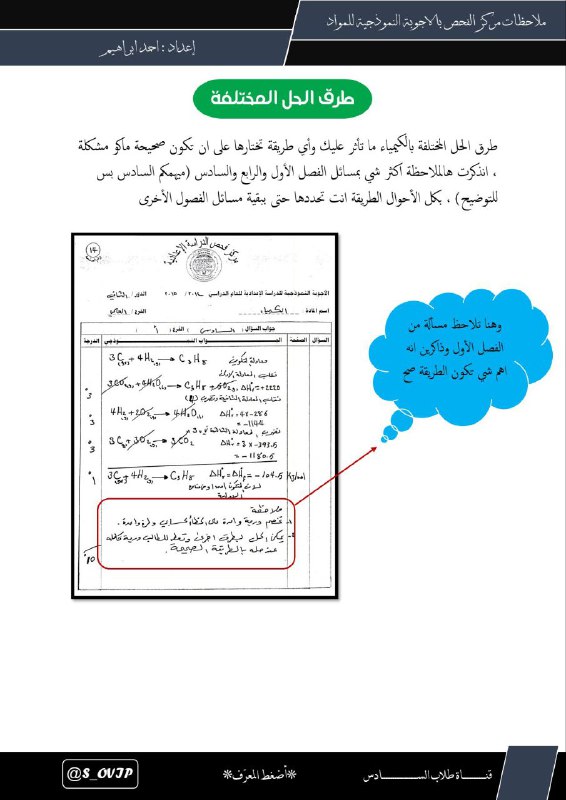 ملاحظات مركز الفحص بالاجوبة النموذجية للمواد
إعداد : احمد ابراهيم
طرق الحل المختلفة
طرق الحل المختلفة بالكيمياء ما تأثر عليك وأي طريقة تختارها على ان تكون صحيحة ماكو مشكلة
، انذكرت هالملاحظة اكثر شي بمسائل الفصل الأول والرابع والسادس (ميهمكم السادس بس
للتوضيح) ، بكل الأحوال الطريقة انت تحددها حتى ببقية مسائل الفصول الأخرى
وهنا نلاحظ مسألة من
الفصل الأول وذاكرين انه
اهم شي تكون الطريقة صح
١٤
مركز فحص الدراسة الإعدادية
الأجوبة النموذجية للدراسة الإعدادية للعام الدراسي ٢٠١٤ / ٢٠١٥ الدور / الثاني
اسم المادة / الكيمياء
جواب السؤال / السادس الفرع / أ
السؤال الصفحة الجواب النموذجي الدرجة
معادلة التكوين
3C(gra) + 4H2(g) → C3H8
3CO2(g) + 4H2O(l) → C3H8 + 5O2(g) ΔH°r = +2220
4H2(g) + 2O2(g) → 4H2O(l) ΔH°r = 4x-286
= -1144
3C(gra) + 3O2(g) → 3CO2 ΔH°r = 3 x -393.5
= -1180.5
3C(gra) + 4H2(g) → C3H8 ΔH°r = ΔH°f = -104.5 kJ/mol
ملاحظة
١- تخصم درجة واحدة على الخطأ الحسابي ولمرة واحدة .
٢- يمكن الحل بطرق اخرى وتعطى للطالب درجة كاملة
عند حله بالطريقة الصحيحة .
@S_OVIP
*أضغط المعرّف*
قناة طلاب السادس